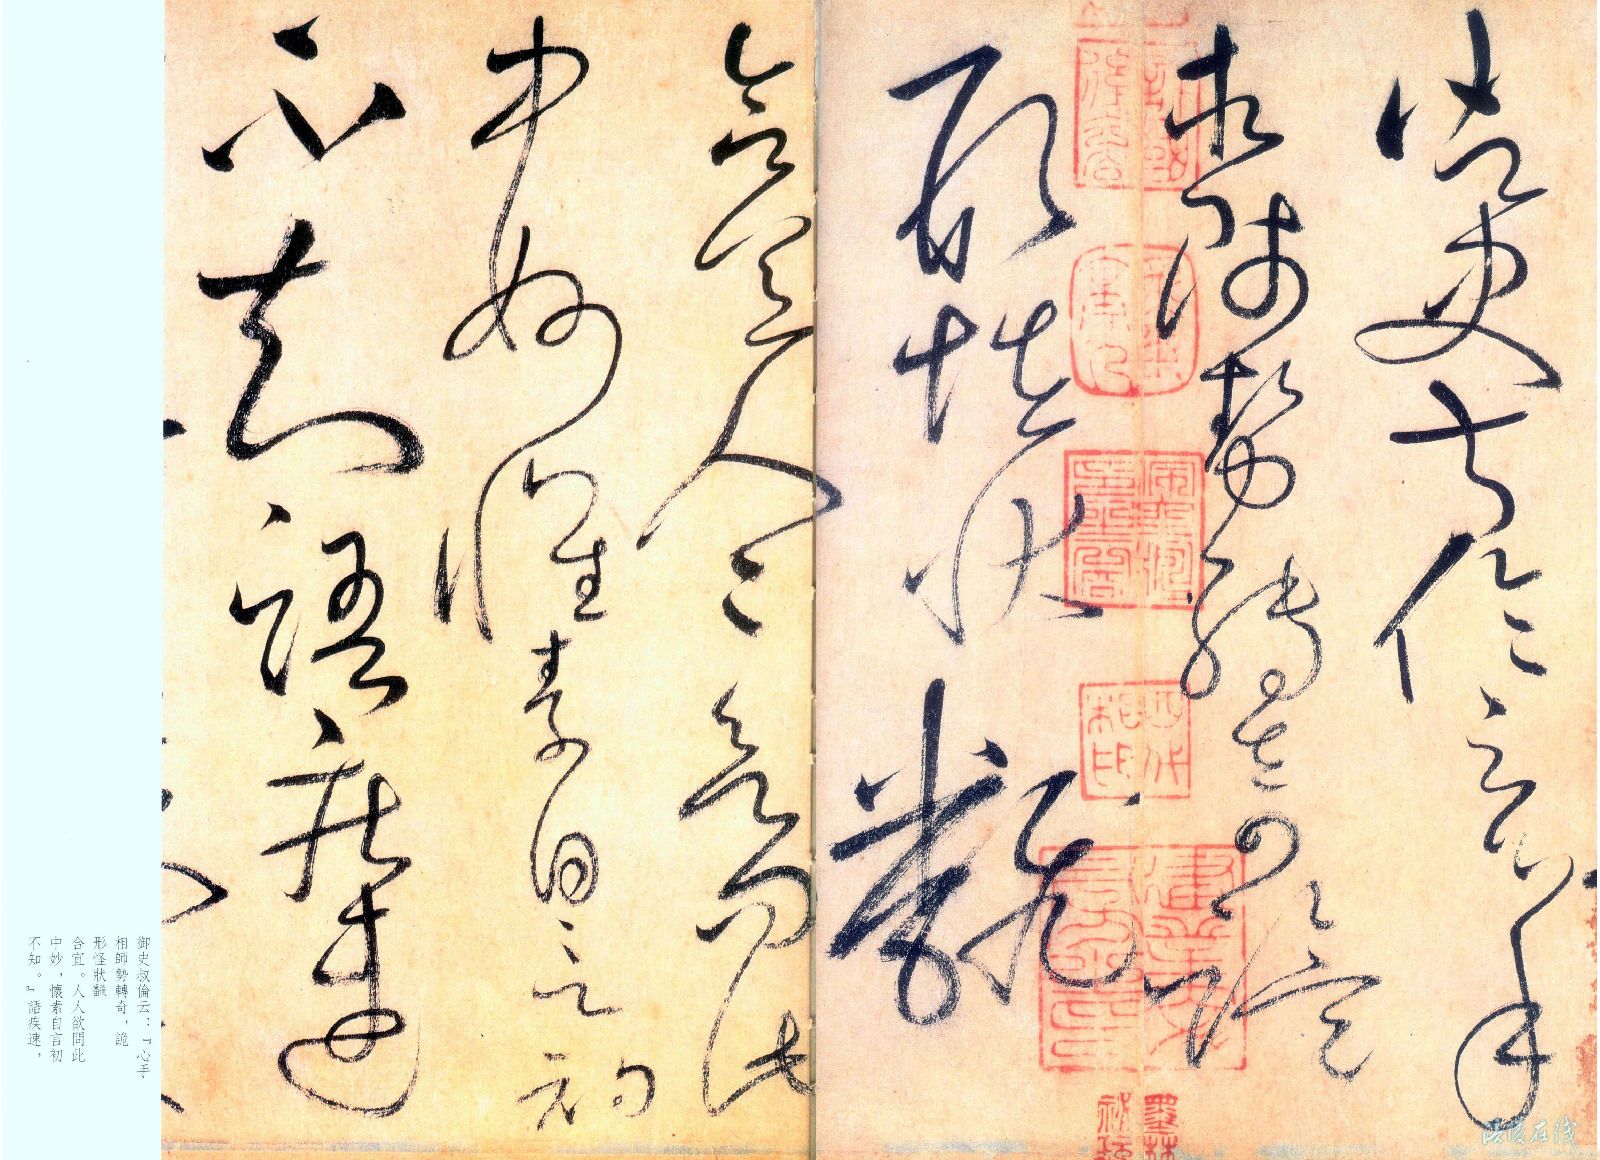 御史叔倫云心手
相師勢轉奇詭
形怪狀飜
合宜人人欲問此
中妙懷素自言初
不知語疾速
御史叔倫云：『心手
相師勢轉奇，詭
形怪狀飜
合宜。人人欲問此
中妙，懷素自言初
不知。』語疾速，
四代相印